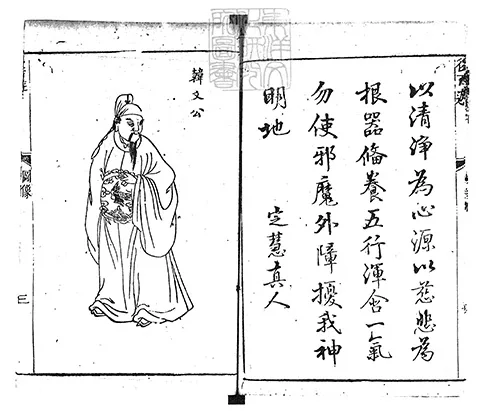 以清淨為心源以慈悲為
根器備養五行渾含一氣
勿使邪魔外障擾我神
明地
定慧真人
韓文公
圖像
三